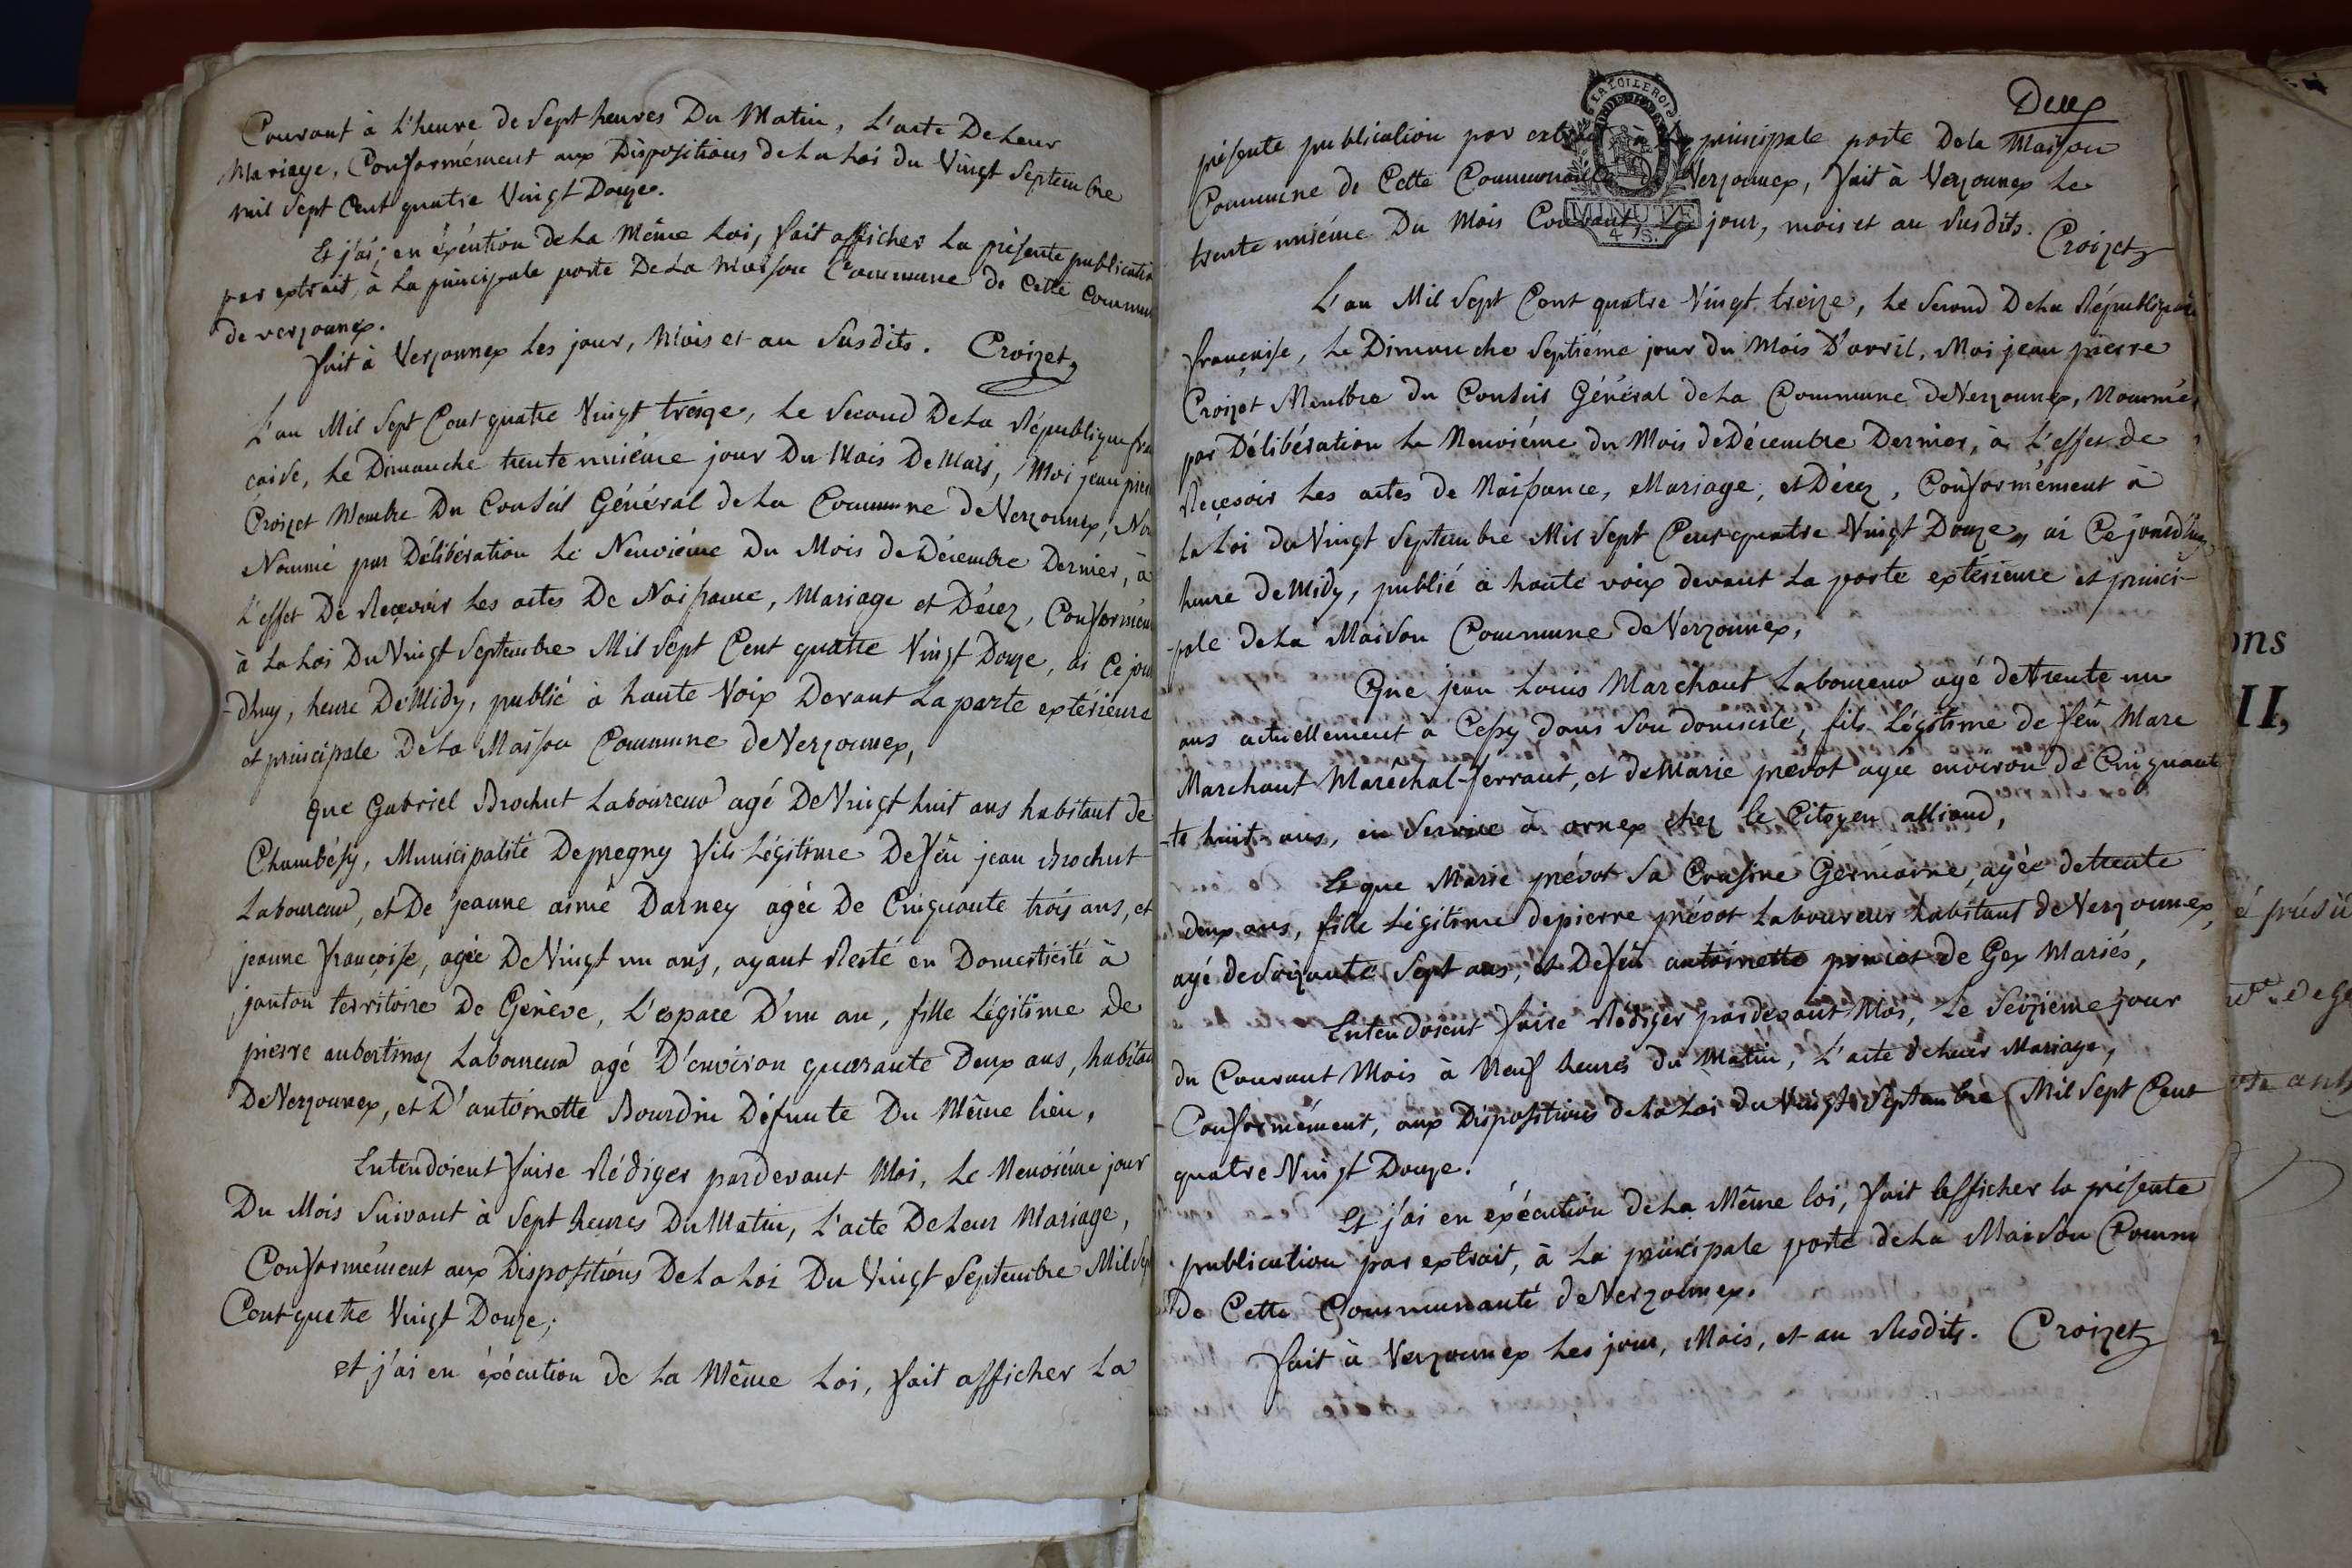 Courant à L'heure de Sept heures Du Matin, L'acte De Leur
Mariage, Conformément aux Dispositions de La Loi du Vingt Septembre
mil Sept Cent quatre Vingt Douze.
Et j'ai, en éxécution de La Même Loi, fait afficher La présente publication
par extrait, à La principale porte De La Maison Commune de Cette Commun
de verzonnex.
fait à Verzonnex Les jour, Mois et an Susdits. Croizet
L'an Mil Sept Cent quatre Vingt treize, Le Second De La République fran
caise, Le Dimanche trente unième jour Du Mois De Mars, Moi jean pierre
Croizet Membre Du Conseil Général de La Commune de Verzonnex,
Nommé par Délibération Le Neuvième Du Mois de Décembre Dernier, à
L'effet De Recevoir Les actes De Naissance, Mariage et Décez, Conformém
à La Loi Du Vingt Septembre Mil Sept Cent quatre Vingt Douze, ai Ce jour
-dhuy, heure De Midy, publié à haute Voix Devant La porte extérieure
et principale De La Maison Commune de Verzonnex,
que Gabriel Brochut Laboureur agé De Vingt huit ans habitant de
Chambésy, Municipalité De pregny fils Légitime De feu jean Brochut
Laboureur, et De jeanne aimé Darney agée De Cinquante trois ans, et
jeanne françoise, agée De Vingt un ans, ayant Resté en Domesticité à
territoire De Genève, L'espace D'un an, fille Légitime de
pierre aubertinaz Laboureur agé D'environ quarante Deux ans, habitan
De Verzonnex, et D'antoinette Bourdin Défunte Du Même lieu,
Entendoient faire Rédiger pardevant Moi, Le Neuvième jour
Du Mois Suivant à Sept heures Du Matin, L'acte De Leur Mariage,
Conformément aux Dispositions De La Loi Du Vingt Septembre Mil Sept
Cent quatre Vingt Douze;
et j'ai en éxécution de La Même Loi, fait afficher La
Deux
présente publication par extrait à La principale porte De La Maison
Commune de Cette Communauté de Verzonnex, fait à Verzonnex Le
trente unième Du Mois Courant, Les jour, mois et an Susdits. Croizet
MINUTE
4 S.
L'an Mil Sept Cent quatre Vingt treize, Le Second De La République
françoise, Le Dimanche Septième jour du Mois D'avril, Moi jean pierre
Croizet Membre du Conseil Général de La Commune de Verzonnex, Nommé
par Délibération Le Neuvième du Mois de Décembre Dernier, à L'effet de
Reçevoir Les actes de Naissance, Mariage, et Décez, Conformément à
La Loi du Vingt Septembre Mil Sept Cent quatre Vingt Douze, ai Cejourd'huy
heure de Midy, publié à haute voix devant La porte extérieure et princi-
-pale de La Maison Commune de Verzonnex,
Que jean Louis Marchant Laboureur agé de trente un
ans actuellement à Cessy dans Son domicile, fils Légitime de feu Marc
Marchant Maréchal-ferrant, et de Marie prevot agée environ de Cinquant
-te huit ans, en Service à ornex chez le Citoyen alliaud,
Et que Marie prévot Sa Cousine Germaine, agée de trente
deux ans, fille Légitime de pierre prévot Laboureur habitant de Verzonnex,
agé de Soixante Sept ans, et De feu antoinette poncet de Gex Mariés,
Entendoient faire Rédiger pardevant Moi, Le Seizième jour
du Courant Mois à Neuf heures du Matin, L'acte de Leur Mariage,
Conformément, aux Dispositions de La Loi du Vingt Septembre Mil Sept Cent
quatre Vingt Douze.
Et j'ai en éxécution de La Même loi, fait afficher la présente
publication par extrait, à La principale porte de La Maison Comm
de Cette Communauté de Verzonnex.
fait à Verzonnex Les jour, Mois, et an Susdits. Croizet
ons
II,